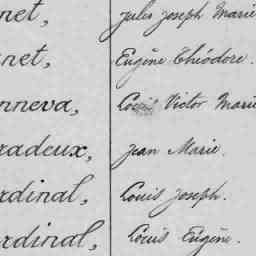 net, Jules Joseph Marie
net, Eugène Théodore.
nneva, Louis Victor Marie
radeux, Jean Marie.
rdinal, Louis Joseph.
rdinal, Louis Eugène.